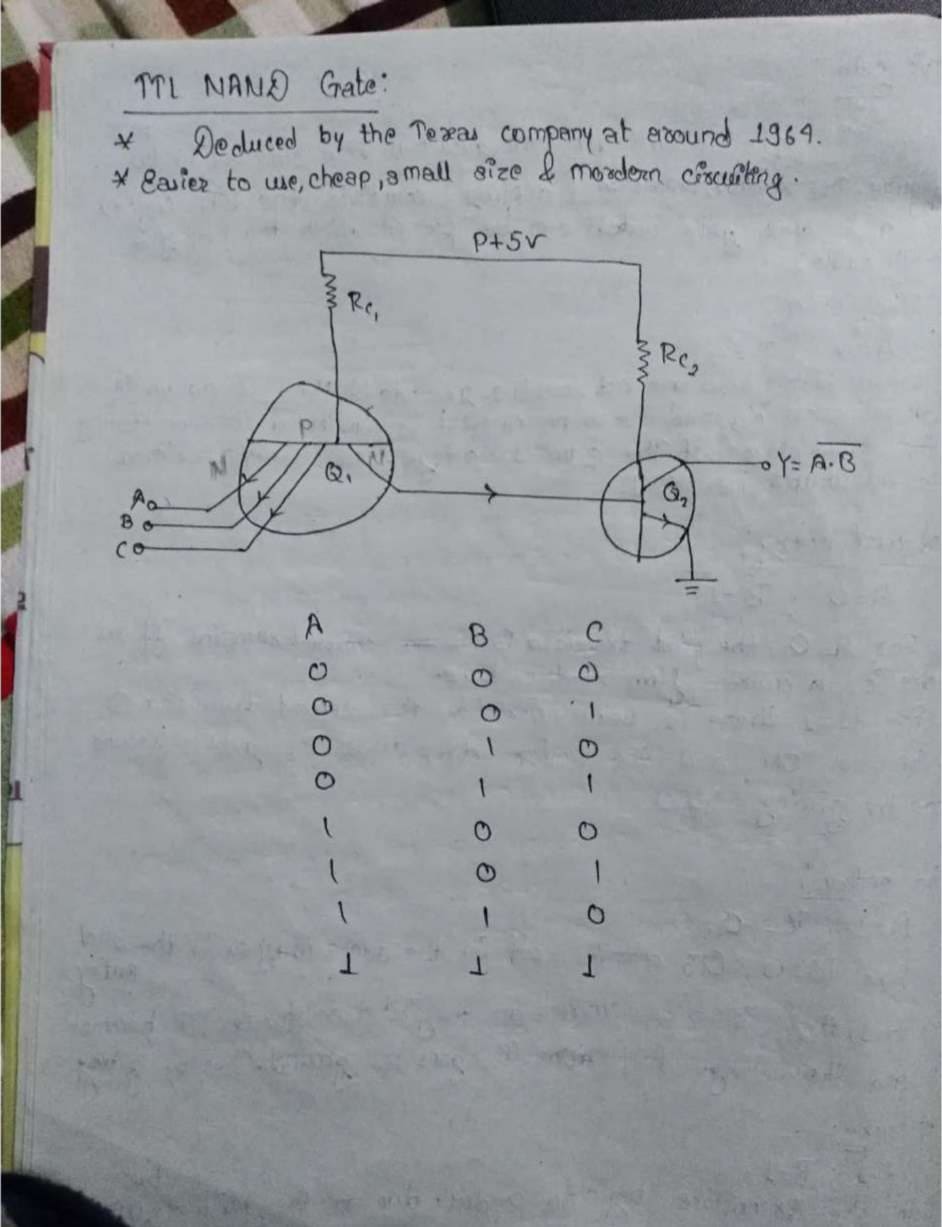 TTL NAND Gate:
* Deduced by the Texas company at around 1964.
* Easier to use, cheap, small size & mordern circuiting.
P+5v
Rc₁
Rc₂
P
N
N
Q₁
Y= \overline{A.B}
Q₂
A
B
C
A B C
0 0 0
0 0 1
0 1 0
0 1 1
1 0 0
1 0 1
1 1 0
1 1 1